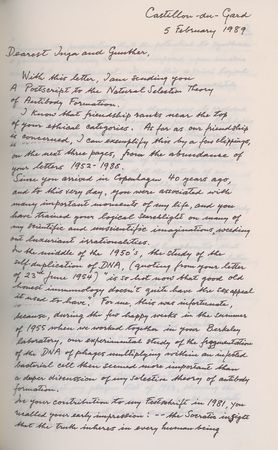 Castillon-du-Gard
5 February 1989
Dearest Inga and Gunther,
With this letter, I am sending you
A Postscript to the Natural Selection Theory
of Antibody Formation.
I know that friendship ranks near the top
of your ethical categories. As far as our friendship
is concerned, I can exemplify this by a few clippings,
on the next three pages, from the abundance of
your letters 1952-1986.
Since you arrived in Copenhagen 40 years ago,
and to this very day, you were associated with
many important moments of my life, and you
have trained your logical searchlight on many of
my scientific and unscientific imaginations, weeding
out luxuriant irrationalities.
In the middle of the 1950's, the study of the
self-duplication of DNA, (quoting from your letter
of 23rd June 1954) "is so hot now that good old
honest immunology doesn't quite have the sex appeal
it used to have". For me this was unfortunate,
because, during the few happy weeks in the summer
of 1955 when we worked together in your Berkeley
laboratory, our experimental study of the fragmentation
of the DNA of phages multiplying within an infected
bacterial cell then seemed more important than
a deeper discussion of my selective theory of antibody
formation.
In your contribution to my Festschrift in 1981, you
recalled your early impression: -- the Socratic insight
that the truth inheres in every human being